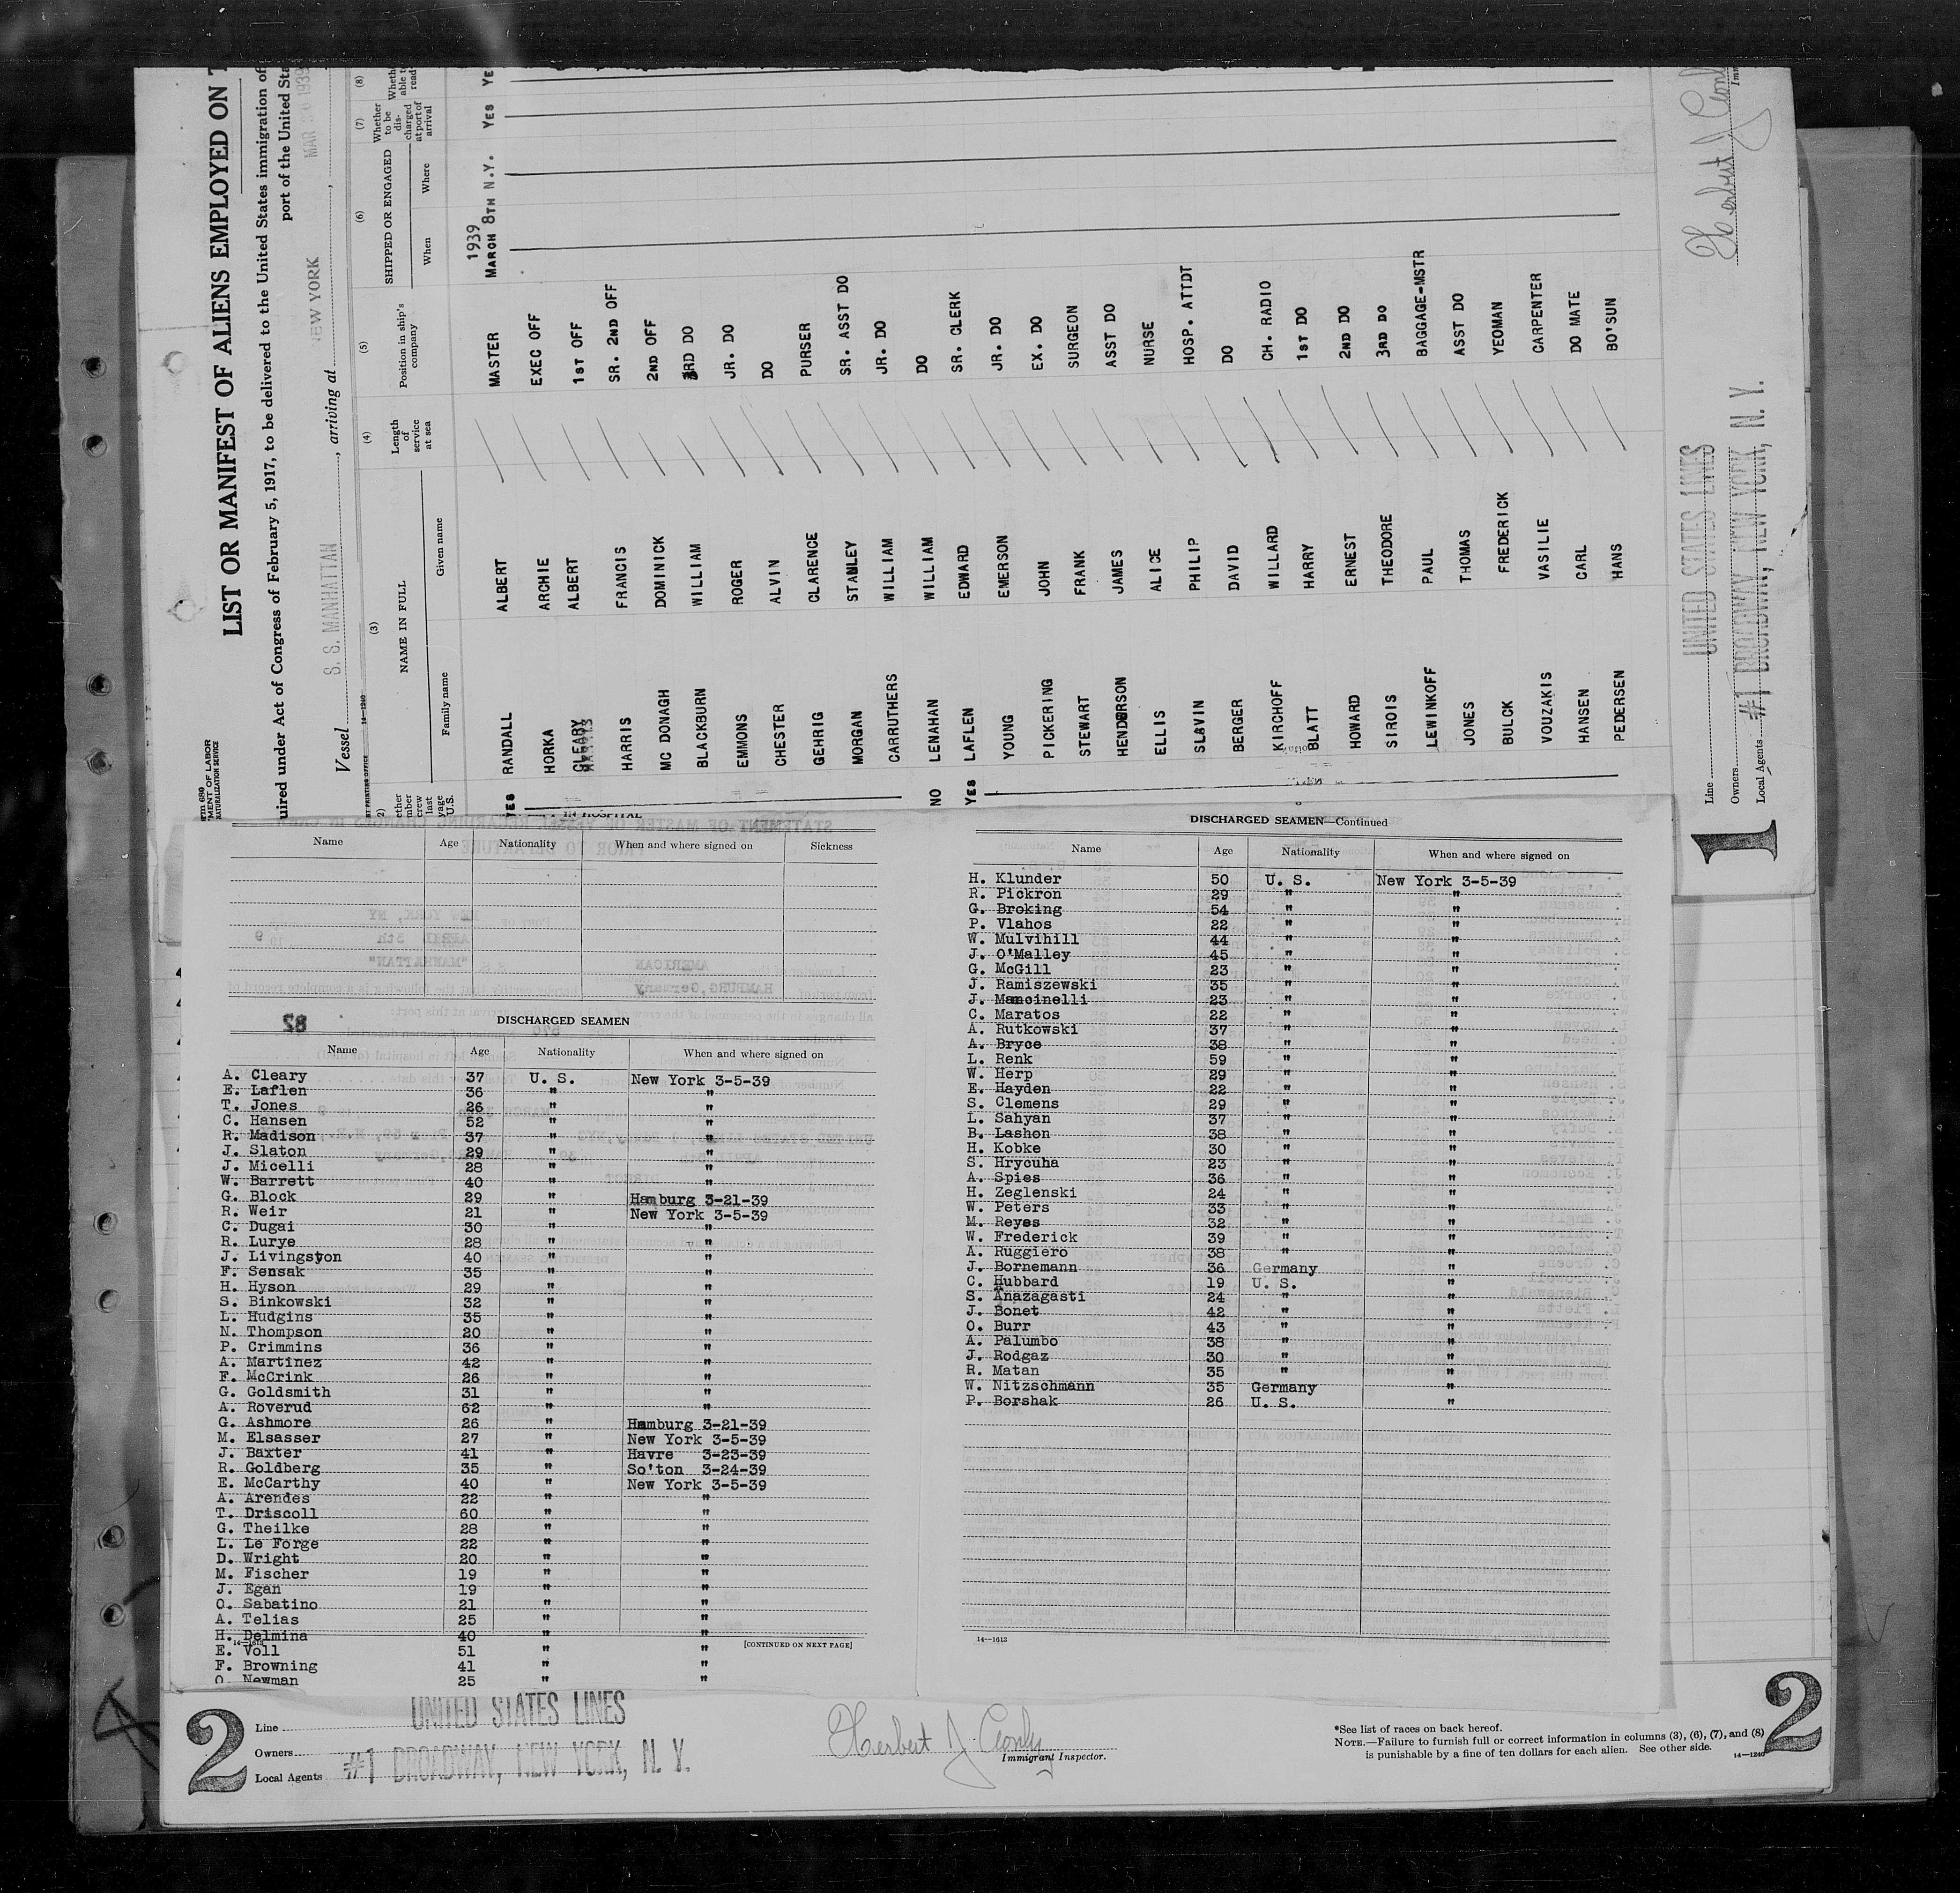 LIST OR MANIFEST OF ALIENS EMPLOYED ON
uired under Act of Congress of February 5, 1917, to be delivered to the United States immigration of
port of the United Sta
Vessel S. S. MANHATTAN, arriving at NEW YORK, MAR 30 1939
(3) (4) (5) (6) (7) (8)
NAME IN FULL
Family name Given name
Length of service at sea
Position in ship's company
SHIPPED OR ENGAGED
When Where
Whether to be discharged at port of arrival
1939
YES RANDALL ALBERT MASTER MARCH 8TH N.Y. YES YE
HORKA ARCHIE EXEC OFF
CLEARY ALBERT 1ST OFF
HARRIS FRANCIS SR. 2ND OFF
MC DONAGH DOMINICK 2ND OFF
BLACKBURN WILLIAM 3RD DO
EMMONS ROGER JR. DO
CHESTER ALVIN DO
GEHRIG CLARENCE PURSER
MORGAN STANLEY SR. ASST DO
CARRUTHERS WILLIAM JR. DO
NO LENAHAN WILLIAM DO
YES LAFLEN EDWARD SR. CLERK
YOUNG EMERSON JR. DO
PICKERING JOHN EX. DO
STEWART FRANK SURGEON
HENDERSON JAMES ASST DO
ELLIS ALICE NURSE
SLAVIN PHILIP HOSP. ATTDT
BERGER DAVID DO
KIRCHOFF WILLARD CH. RADIO
BLATT HARRY 1ST DO
HOWARD ERNEST 2ND DO
SIROIS THEODORE 3RD DO
LEWINKOFF PAUL BAGGAGE-MSTR
JONES THOMAS ASST DO
BULCK FREDERICK YEOMAN
VOUZAKIS VASILIE CARPENTER
HANSEN CARL DO MATE
PEDERSEN HANS BO'SUN
Line UNITED STATES LINES
Owners
Local Agents #1 BROADWAY, NEW YORK, N. Y.
1
IN HOSPITAL
Name Age Nationality When and where signed on Sickness
82
DISCHARGED SEAMEN
Name Age Nationality When and where signed on
A. Cleary 37 U. S. New York 3-5-39
E. Laflen 36 " "
T. Jones 26 " "
C. Hansen 52 " "
R. Madison 37 " "
J. Slaton 29 " "
J. Micelli 28 " "
W. Barrett 40 " "
G. Block 29 " Hamburg 3-21-39
R. Weir 21 " New York 3-5-39
C. Dugai 30 " "
R. Lurye 28 " "
J. Livingston 40 " "
F. Sensak 35 " "
H. Hyson 29 " "
S. Binkowski 32 " "
L. Hudgins 35 " "
N. Thompson 20 " "
P. Crimmins 36 " "
A. Martinez 42 " "
F. McCrink 26 " "
G. Goldsmith 31 " "
A. Roverud 62 " "
G. Ashmore 26 " Hamburg 3-21-39
M. Elsasser 27 " New York 3-5-39
J. Baxter 41 " Havre 3-23-39
R. Goldberg 35 " So'ton 3-24-39
E. McCarthy 40 " New York 3-5-39
A. Arendes 22 " "
T. Driscoll 60 " "
G. Theilke 28 " "
L. Le Forge 22 " "
D. Wright 20 " "
M. Fischer 19 " "
J. Egan 19 " "
O. Sabatino 21 " "
A. Telias 25 " "
H. Delmina 40 " "
14—1613 [CONTINUED ON NEXT PAGE]
E. Voll 51 " "
F. Browning 41 " "
O. Newman 25 " "
DISCHARGED SEAMEN—Continued
Name Age Nationality When and where signed on
H. Klunder 50 U. S. New York 3-5-39
R. Pickron 29 " "
G. Broking 54 " "
P. Vlahos 22 " "
W. Mulvihill 44 " "
J. O'Malley 45 " "
G. McGill 23 " "
J. Ramiszewski 35 " "
J. Mancinelli 23 " "
C. Maratos 22 " "
A. Rutkowski 37 " "
A. Bryce 38 " "
L. Renk 59 " "
W. Herp 29 " "
E. Hayden 22 " "
S. Clemens 29 " "
L. Sahyan 37 " "
B. Lashon 38 " "
H. Kobke 30 " "
S. Hrycuha 23 " "
A. Spies 36 " "
H. Zeglenski 24 " "
W. Peters 33 " "
M. Reyes 32 " "
W. Frederick 39 " "
A. Ruggiero 38 " "
J. Bornemann 36 Germany "
C. Hubbard 19 U. S. "
S. Anazagasti 24 " "
J. Bonet 42 " "
O. Burr 43 " "
A. Palumbo 38 " "
J. Rodgaz 30 " "
R. Matan 35 " "
W. Nitzschmann 35 Germany "
P. Borshak 26 U. S. "
14—1613
2
Line UNITED STATES LINES
Owners
Local Agents #1 BROADWAY, NEW YORK, N. Y.
Herbert J.
Immigrant Inspector.
*See list of races on back hereof.
NOTE.—Failure to furnish full or correct information in columns (3), (6), (7), and (8)
is punishable by a fine of ten dollars for each alien. See other side.
14—1240
2